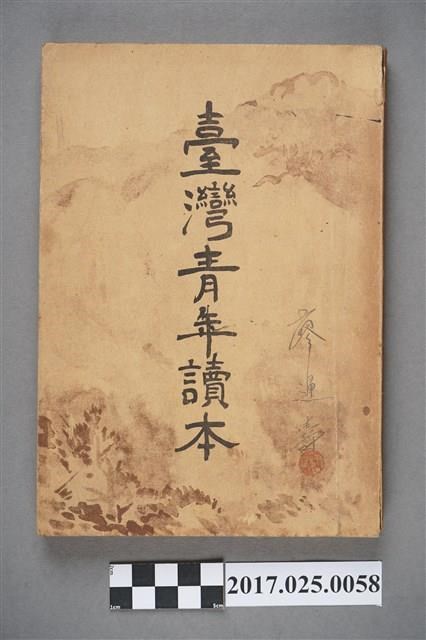 臺灣青年讀本
廖進壽
1cm 5cm
2017.025.0058